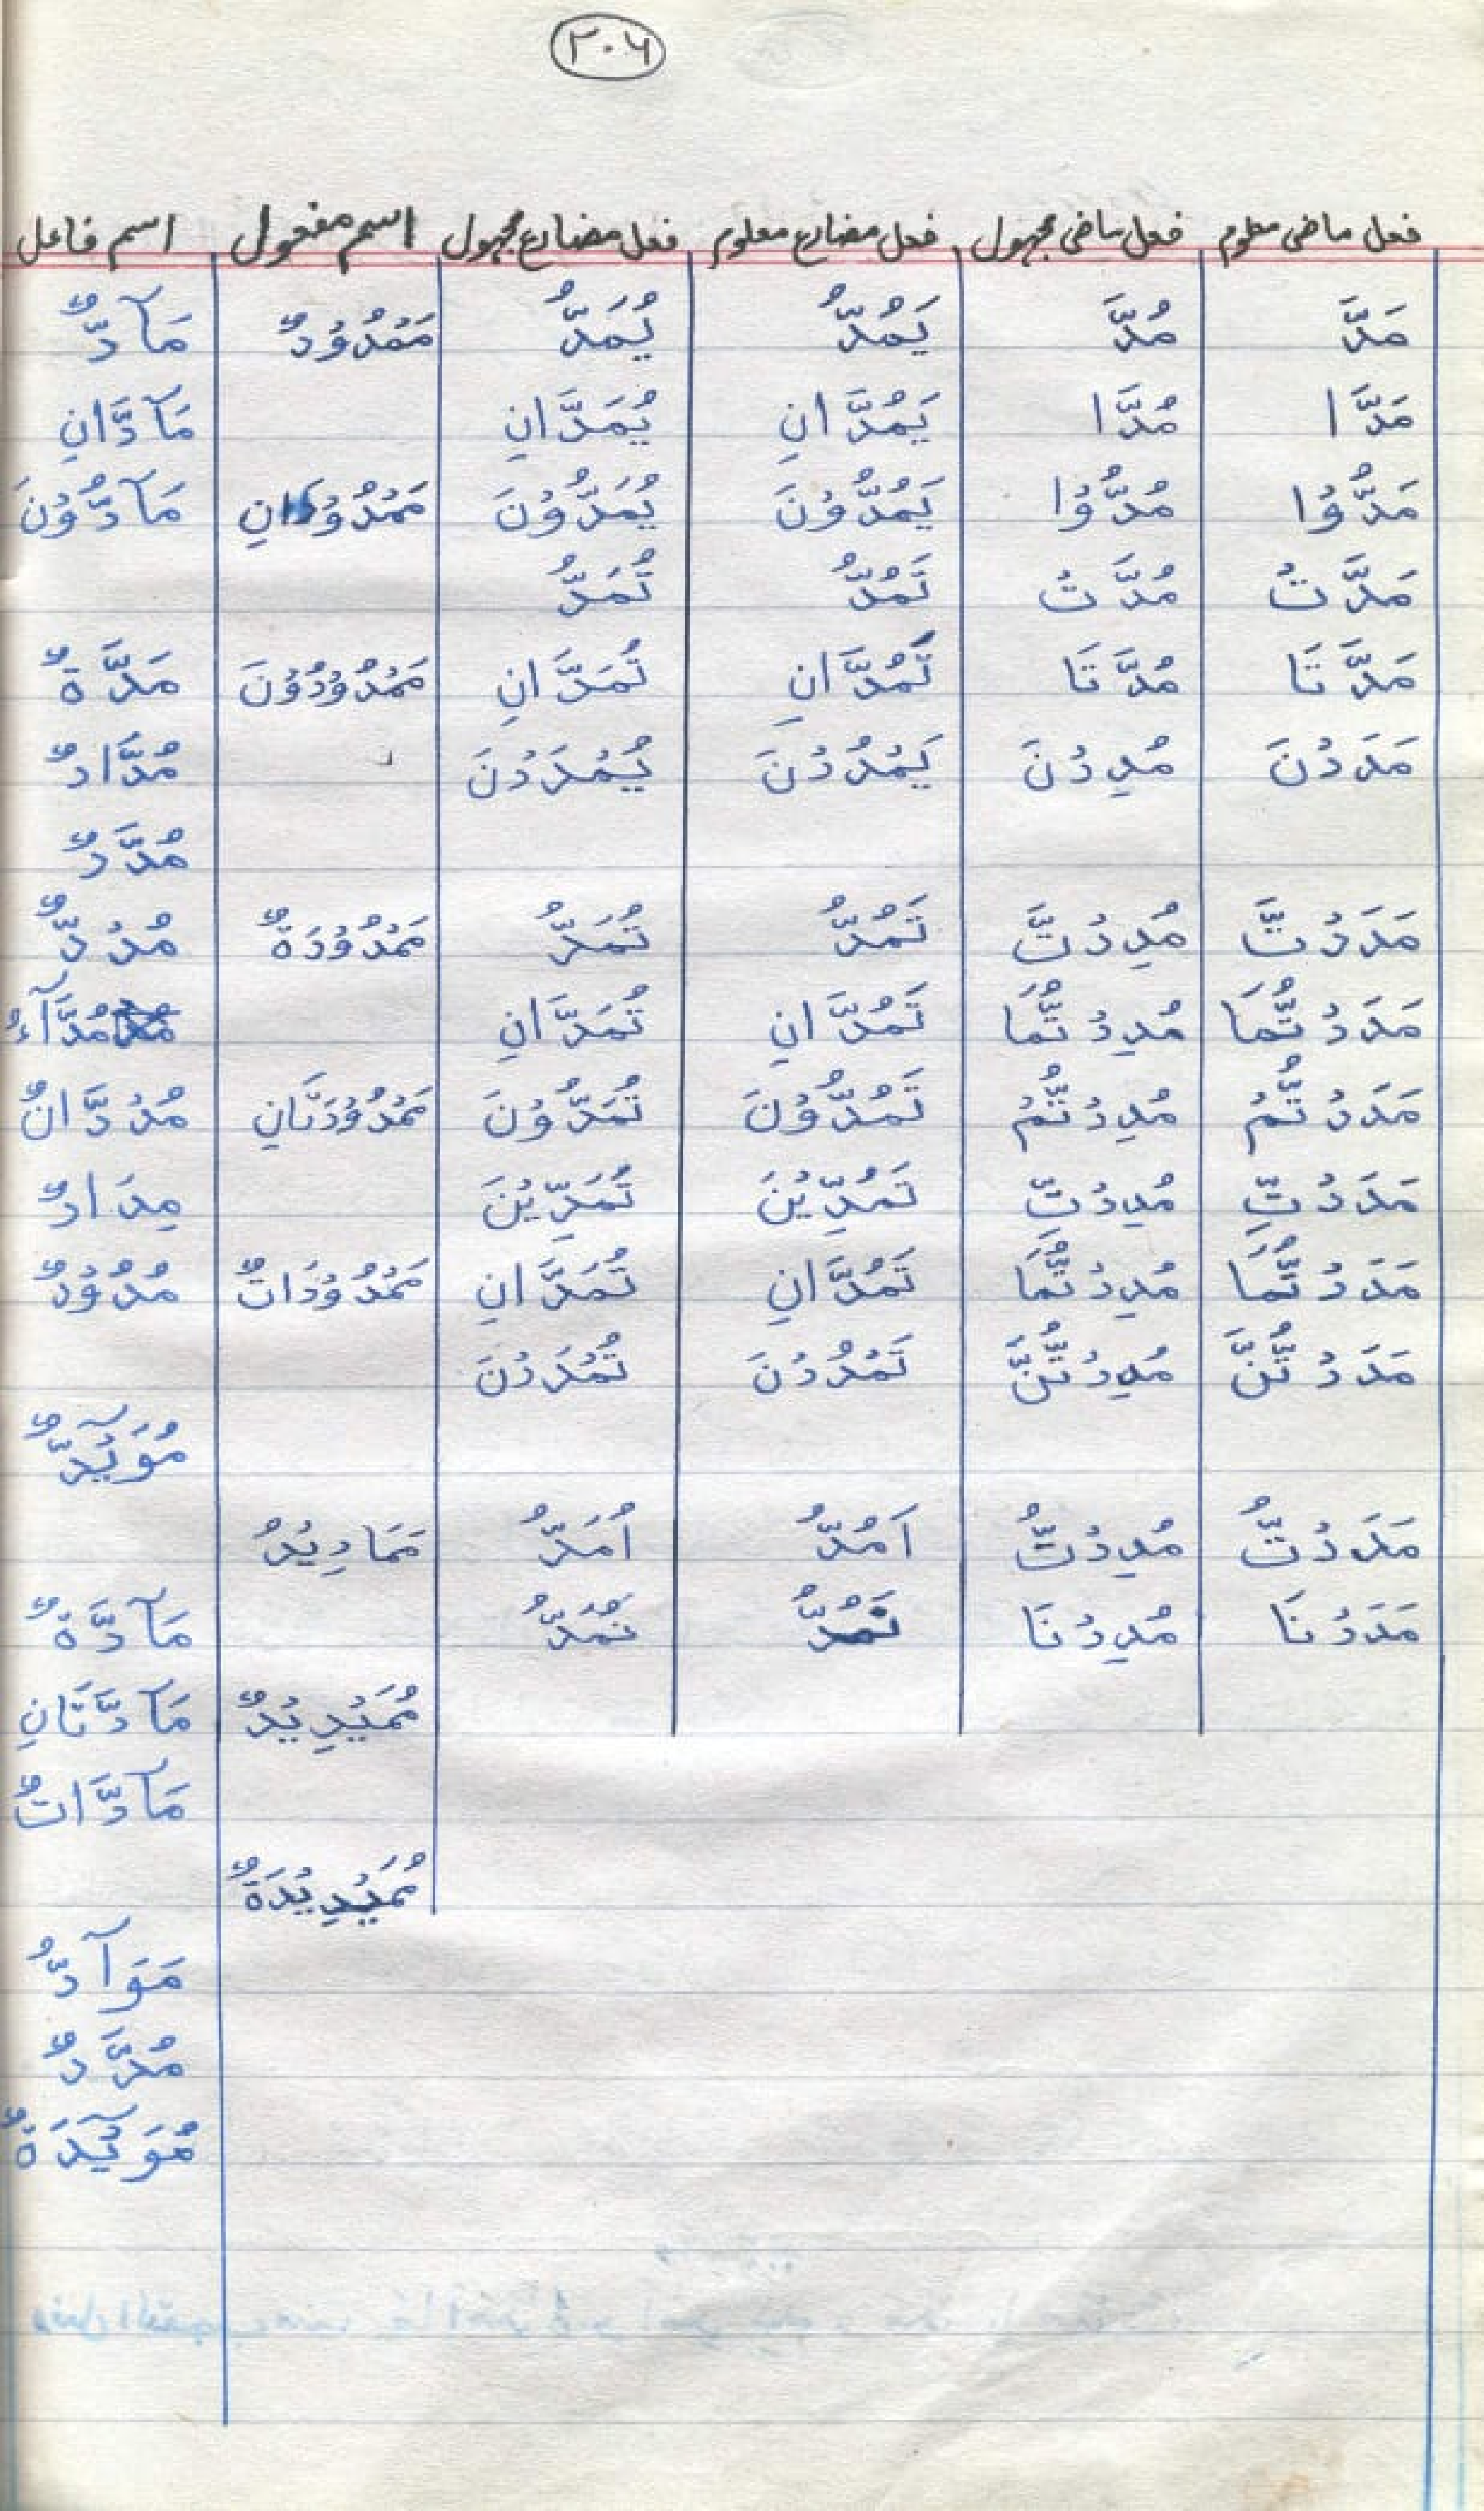 ٢٠٦
فعل ماضی معلوم فعل ماضی مجہول فعل مضارع معلوم فعل مضارع مجہول اسم مفعول اسم فاعل
مَدَّ مُدَّ يَمُدُّ يُمَدُّ مَمْدُوْدٌ مَآدٌّ
مَدَّا مُدَّا يَمُدَّانِ يُمَدَّانِ مَآدَّانِ
مَدُّوْا مُدُّوْا يَمُدُّوْنَ يُمَدُّوْنَ مَمْدُوْدَانِ مَآدُّوْنَ
مَدَّتْ مُدَّتْ تَمُدُّ تُمَدُّ
مَدَّتَا مُدَّتَا تَمُدَّانِ تُمَدَّانِ مَمْدُوْدُوْنَ مَدَّةٌ
مَدَدْنَ مُدِدْنَ يَمْدُدْنَ يُمْدَدْنَ مُدَّادٌ
مُدَّدٌ
مَدَدْتَّ مُدِدْتَّ تَمُدُّ تُمَدُّ مَمْدُوْدَةٌ مُدْدٌّ
مَدَدْتُّمَا مُدِدْتُّمَا تَمُدَّانِ تُمَدَّانِ مُدَّآءُ
مَدَدْتُّمْ مُدِدْتُّمْ تَمُدُّوْنَ تُمَدُّوْنَ مَمْدُوْدَتَانِ مُدْدَّانٌ
مَدَدْتِّ مُدِدْتِّ تَمُدِّيْنَ تُمَدِّيْنَ مِدَادٌ
مَدَدْتُّمَا مُدِدْتُّمَا تَمُدَّانِ تُمَدَّانِ مَمْدُوْدَاتٌ مُدُوْدٌ
مَدَدْتُّنَّ مُدِدْتُّنَّ تَمْدُدْنَ تُمْدَدْنَ
مُوَيْدٌّ
مَدَدْتُّ مُدِدْتُّ اَمُدُّ اُمَدُّ مَمَادِيْدُ
مَدَدْنَا مُدِدْنَا نَمُدُّ نُمَدُّ مَآدَّةٌ
مُمَيْدِيْدٌ مَآدَّتَانِ
مَآدَّاتٌ
مُمَيْدِيْدَةٌ
مَوَآدُّ
مُدَّدٌ
مُوَيْدَّةٌ